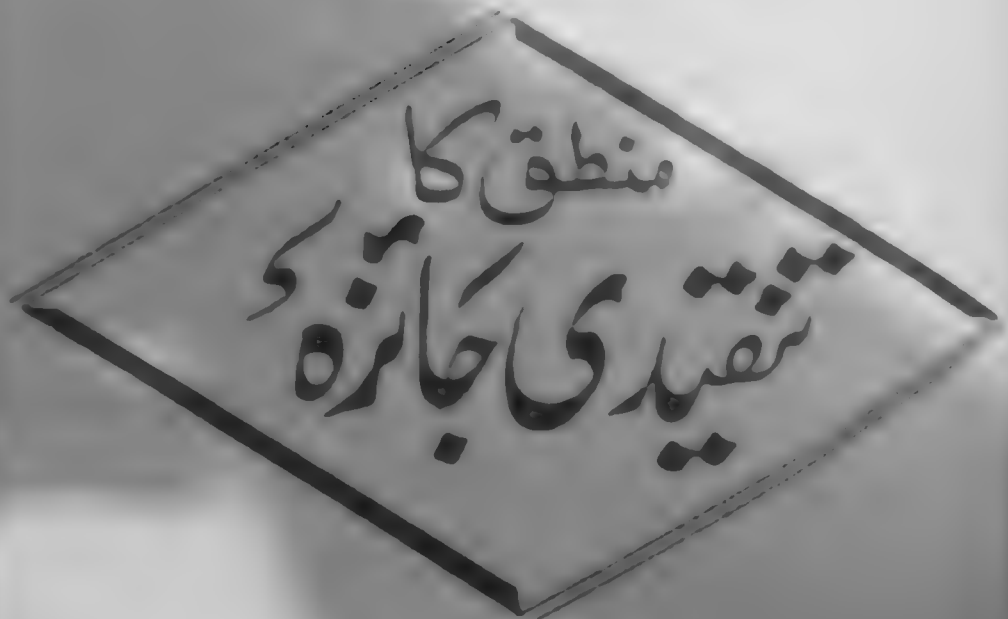 منطق کا
تنقیدی جائزہ